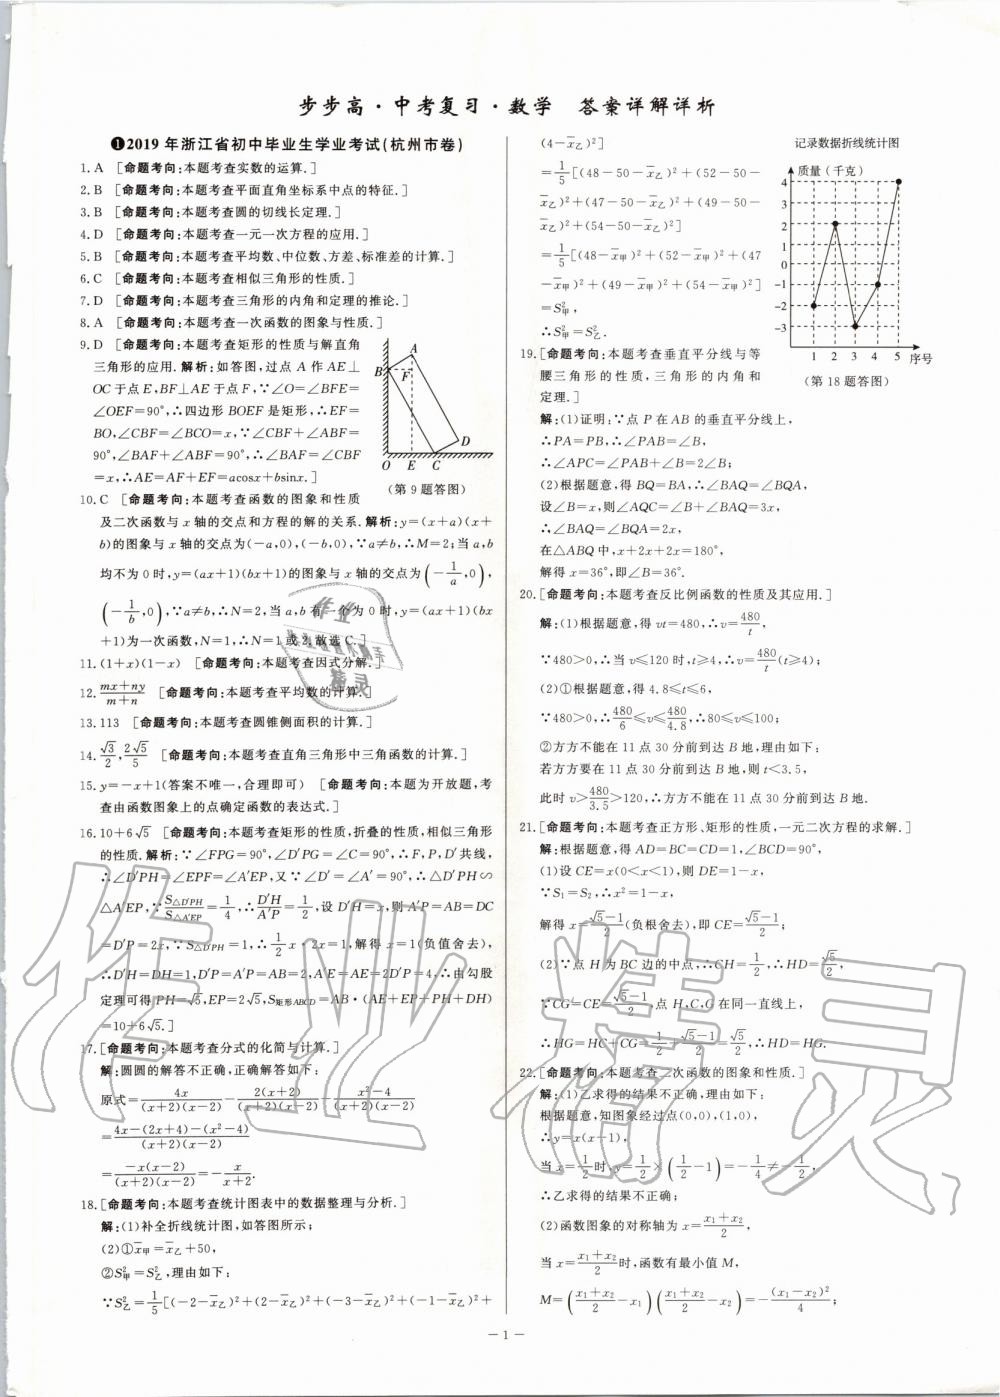 步步高·中考复习·数学 答案详解详析
❶2019年浙江省初中毕业生学业考试(杭州市卷)
1. A [命题考向:本题考查实数的运算.]
2. B [命题考向:本题考查平面直角坐标系中点的特征.]
3. B [命题考向:本题考查圆的切线长定理.]
4. D [命题考向:本题考查一元一次方程的应用.]
5. B [命题考向:本题考查平均数、中位数、方差、标准差的计算.]
6. C [命题考向:本题考查相似三角形的性质.]
7. D [命题考向:本题考查三角形的内角和定理的推论.]
8. A [命题考向:本题考查一次函数的图象与性质.]
9. D [命题考向:本题考查矩形的性质与解直角
三角形的应用.解析:如答图,过点A作AE⊥
OC于点E,BF⊥AE于点F,∵∠O=∠BFE=
∠OEF=90°,∴四边形BOEF是矩形,∴EF=
BO,∠CBF=∠BCO=x,∵∠CBF+∠ABF=
90°,∠BAF+∠ABF=90°,∴∠BAF=∠CBF
=x,∴AE=AF+EF=acosx+bsinx.]
A
B
F
D
O E C
(第9题答图)
10. C [命题考向:本题考查函数的图象和性质
及二次函数与x轴的交点和方程的解的关系.解析:y=(x+a)(x+
b)的图象与x轴的交点为(-a,0),(-b,0),∵a≠b,∴M=2;当a,b
均不为0时,y=(ax+1)(bx+1)的图象与x轴的交点为(-1/a,0),
(-1/b,0),∵a≠b,∴N=2,当a,b有一个为0时,y=(ax+1)(bx
+1)为一次函数,N=1,∴N=1或2.故选C.]
11. (1+x)(1-x) [命题考向:本题考查因式分解.]
12. (mx+ny)/(m+n) [命题考向:本题考查平均数的计算.]
13. 113 [命题考向:本题考查圆锥侧面积的计算.]
14. √3/2,2√5/5 [命题考向:本题考查直角三角形中三角函数的计算.]
15. y=-x+1(答案不唯一,合理即可) [命题考向:本题为开放题,考
查由函数图象上的点确定函数的表达式.]
16. 10+6√5 [命题考向:本题考查矩形的性质,折叠的性质,相似三角形
的性质.解析:∵∠FPG=90°,∠D′PG=∠C=90°,∴F,P,D′共线,
∴∠D′PH=∠EPF=∠A′EP,又∵∠D′=∠A′=90°,∴△D′PH∽
△A′EP,∵S△D′PH/S△A′EP=1/4,∴D′H/A′P=1/2,设D′H=x,则A′P=AB=DC
=D′P=2x,∵S△D′PH=1,∴1/2x·2x=1,解得x=1(负值舍去),
∴D′H=DH=1,D′P=A′P=AB=2,A′E=2D′P=4,∴由勾股
定理可得PH=√5,EP=2√5,S矩形ABCD=AB·(AE+EP+PH+DH)
=10+6√5.]
17. [命题考向:本题考查分式的化简与计算.]
解:圆圆的解答不正确,正确解答如下:
原式=4x/((x+2)(x-2))-2(x+2)/((x+2)(x-2))-(x²-4)/((x+2)(x-2))
=(4x-(2x+4)-(x²-4))/((x+2)(x-2))
=-x(x-2)/((x+2)(x-2))=-x/(x+2).
18. [命题考向:本题考查统计图表中的数据整理与分析.]
解:(1)补全折线统计图,如答图所示;
(2)①x̄甲=x̄乙+50,
②S²甲=S²乙,理由如下:
∵S²乙=1/5[(-2-x̄乙)²+(2-x̄乙)²+(-3-x̄乙)²+(-1-x̄乙)²+
(4-x̄乙)²]
=1/5[(48-50-x̄乙)²+(52-50-
x̄乙)²+(47-50-x̄乙)²+(49-50-
x̄乙)²+(54-50-x̄乙)²]
=1/5[(48-x̄甲)²+(52-x̄甲)²+(47
-x̄甲)²+(49-x̄甲)²+(54-x̄甲)²]
=S²甲,
∴S²甲=S²乙.
记录数据折线统计图
质量(千克)
4
3
2
1
0
-1
-2
-3
1 2 3 4 5 序号
(第18题答图)
19. [命题考向:本题考查垂直平分线与等
腰三角形的性质,三角形的内角和
定理.]
解:(1)证明:∵点P在AB的垂直平分线上,
∴PA=PB,∴∠PAB=∠B,
∴∠APC=∠PAB+∠B=2∠B;
(2)根据题意,得BQ=BA,∴∠BAQ=∠BQA,
设∠B=x,则∠AQC=∠B+∠BAQ=3x,
∴∠BAQ=∠BQA=2x,
在△ABQ中,x+2x+2x=180°,
解得x=36°,即∠B=36°.
20. [命题考向:本题考查反比例函数的性质及其应用.]
解:(1)根据题意,得vt=480,∴v=480/t,
∵480>0,∴当v≤120时,t≥4,∴v=480/t(t≥4);
(2)①根据题意,得4.8≤t≤6,
∵480>0,∴480/6≤v≤480/4.8,∴80≤v≤100;
②方方不能在11点30分前到达B地,理由如下:
若方方要在11点30分前到达B地,则t<3.5,
此时v>480/3.5>120,∴方方不能在11点30分前到达B地.
21. [命题考向:本题考查正方形、矩形的性质,一元二次方程的求解.]
解:根据题意,得AD=BC=CD=1,∠BCD=90°,
(1)设CE=x(0<x<1),则DE=1-x,
∵S₁=S₂,∴x²=1-x,
解得x=(√5-1)/2(负根舍去),即CE=(√5-1)/2;
(2)∵点H为BC边的中点,∴CH=1/2,∴HD=√5/2,
∵CG=CE=(√5-1)/2,点H,C,G在同一直线上,
∴HG=HC+CG=1/2+(√5-1)/2=√5/2,∴HD=HG.
22. [命题考向:本题考查二次函数的图象和性质.]
解:(1)乙求得的结果不正确,理由如下:
根据题意,知图象经过点(0,0),(1,0),
∴y=x(x-1),
当x=1/2时,y=1/2×(1/2-1)=-1/4≠-1/2,
∴乙求得的结果不正确.
(2)函数图象的对称轴为x=(x₁+x₂)/2,
当x=(x₁+x₂)/2时,函数有最小值M,
M=((x₁+x₂)/2-x₁)((x₁+x₂)/2-x₂)=-(x₁-x₂)²/4;
- 1 -
作业精灵